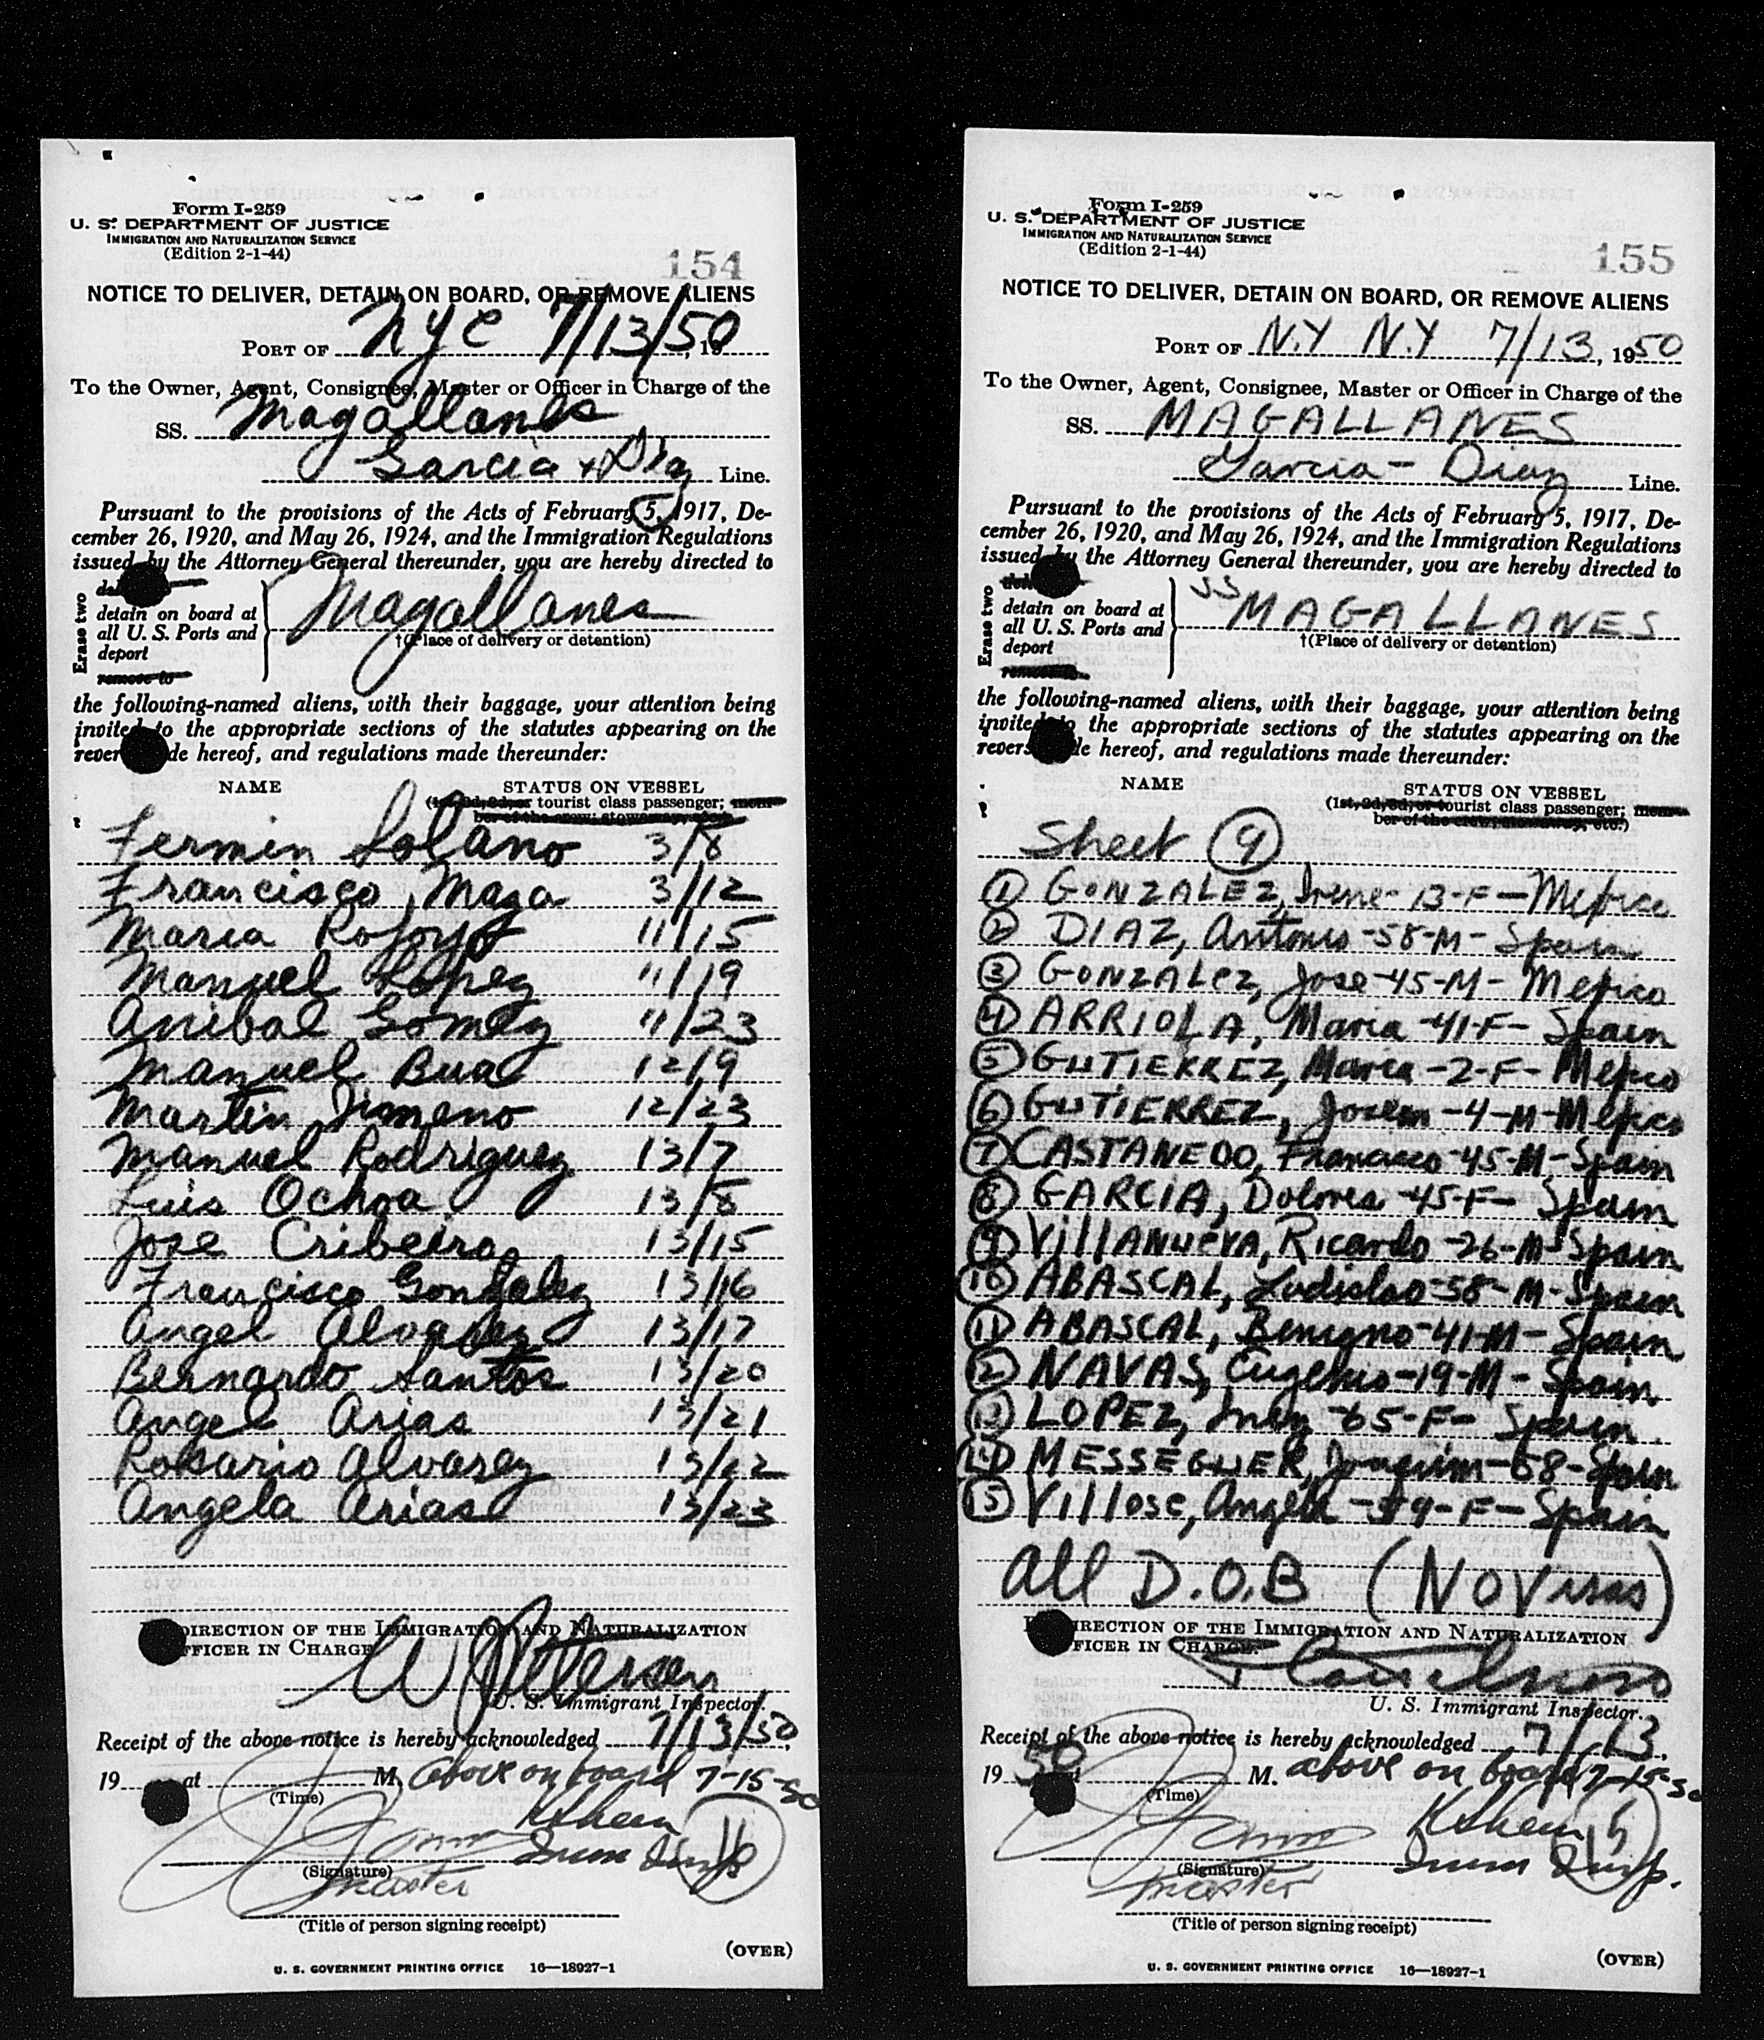 Form I-259
U. S. DEPARTMENT OF JUSTICE
IMMIGRATION AND NATURALIZATION SERVICE
(Edition 2-1-44)
154
NOTICE TO DELIVER, DETAIN ON BOARD, OR REMOVE ALIENS
PORT OF NYC 7/13/50, 19
To the Owner, Agent, Consignee, Master or Officer in Charge of the
SS. Magallanes
Garcia + Diaz Line.
Pursuant to the provisions of the Acts of February 5, 1917, De-
cember 26, 1920, and May 26, 1924, and the Immigration Regulations
issued by the Attorney General thereunder, you are hereby directed to
Erase two
detain on board at
all U. S. Ports and
deport
remove to
Magallanes
†(Place of delivery or detention)
the following-named aliens, with their baggage, your attention being
invited to the appropriate sections of the statutes appearing on the
reverse side hereof, and regulations made thereunder:
NAME STATUS ON VESSEL
(1st, 2d, 3d, or tourist class passenger; mem-
ber of the crew; stowaway, etc.)
Fermin Solano 3/8
Francisco Maza 3/12
Maria Rofoyo 11/15
Manuel Lopez 11/19
Anibal Gomez 11/23
Manuel Bua 12/9
Martin Jimeno 12/23
Manuel Rodriguez 13/7
Luis Ochoa 13/8
Jose Cribeiro 13/15
Francisco Gonzalez 13/16
Angel Alvarez 13/17
Bernardo Santos 13/20
Angel Arias 13/21
Rosario Alvarez 13/22
Angela Arias 13/23
DIRECTION OF THE IMMIGRATION AND NATURALIZATION
OFFICER IN CHARGE
W Peterson
U. S. Immigrant Inspector.
Receipt of the above notice is hereby acknowledged 7/13/50,
19 at M. above on board 7-15-50
(Time)
(Signature) Imm Insp
16
Master
(Title of person signing receipt)
(OVER)
U. S. GOVERNMENT PRINTING OFFICE 16—18927-1
Form I-259
U. S. DEPARTMENT OF JUSTICE
IMMIGRATION AND NATURALIZATION SERVICE
(Edition 2-1-44)
155
NOTICE TO DELIVER, DETAIN ON BOARD, OR REMOVE ALIENS
PORT OF N.Y N.Y 7/13, 1950
To the Owner, Agent, Consignee, Master or Officer in Charge of the
SS. MAGALLANES
Garcia - Diaz Line.
Pursuant to the provisions of the Acts of February 5, 1917, De-
cember 26, 1920, and May 26, 1924, and the Immigration Regulations
issued by the Attorney General thereunder, you are hereby directed to
Erase two
detain on board at
all U. S. Ports and
deport
remove to
SS MAGALLANES
†(Place of delivery or detention)
the following-named aliens, with their baggage, your attention being
invited to the appropriate sections of the statutes appearing on the
reverse side hereof, and regulations made thereunder:
NAME STATUS ON VESSEL
(1st, 2d, 3d, or tourist class passenger; mem-
ber of the crew; stowaway, etc.)
Sheet 9
1 GONZALEZ, Irene - 13-F - Mexico
2 DIAZ, Antonio - 58-M - Spain
3 GONZALEZ, Jose - 45-M - Mexico
4 ARRIOLA, Maria - 41-F - Spain
5 GUTIERREZ, Maria - 2-F - Mexico
6 GUTIERREZ, Josem - 4-M - Mexico
7 CASTANEDO, Francisco - 45-M - Spain
8 GARCIA, Dolores - 45-F - Spain
9 VillANUEVA, Ricardo - 26-M - Spain
10 ABASCAL, Ladislao - 58-M - Spain
11 ABASCAL, Benigno - 41-M - Spain
12 NAVAS, Eugenio - 19-M - Spain
13 LOPEZ, Inez - 65-F - Spain
14 MESSEGUER, Joaquim - 58 - Spain
15 Villose, Angela - 39-F - Spain
All D.O.B (NO Visas)
DIRECTION OF THE IMMIGRATION AND NATURALIZATION
OFFICER IN CHARGE.
U. S. Immigrant Inspector.
Receipt of the above notice is hereby acknowledged 7/13,
19 50 at M. above on board 7-15-50
(Time)
(Signature) Imm Insp.
15
Master
(Title of person signing receipt)
(OVER)
U. S. GOVERNMENT PRINTING OFFICE 16—18927-1